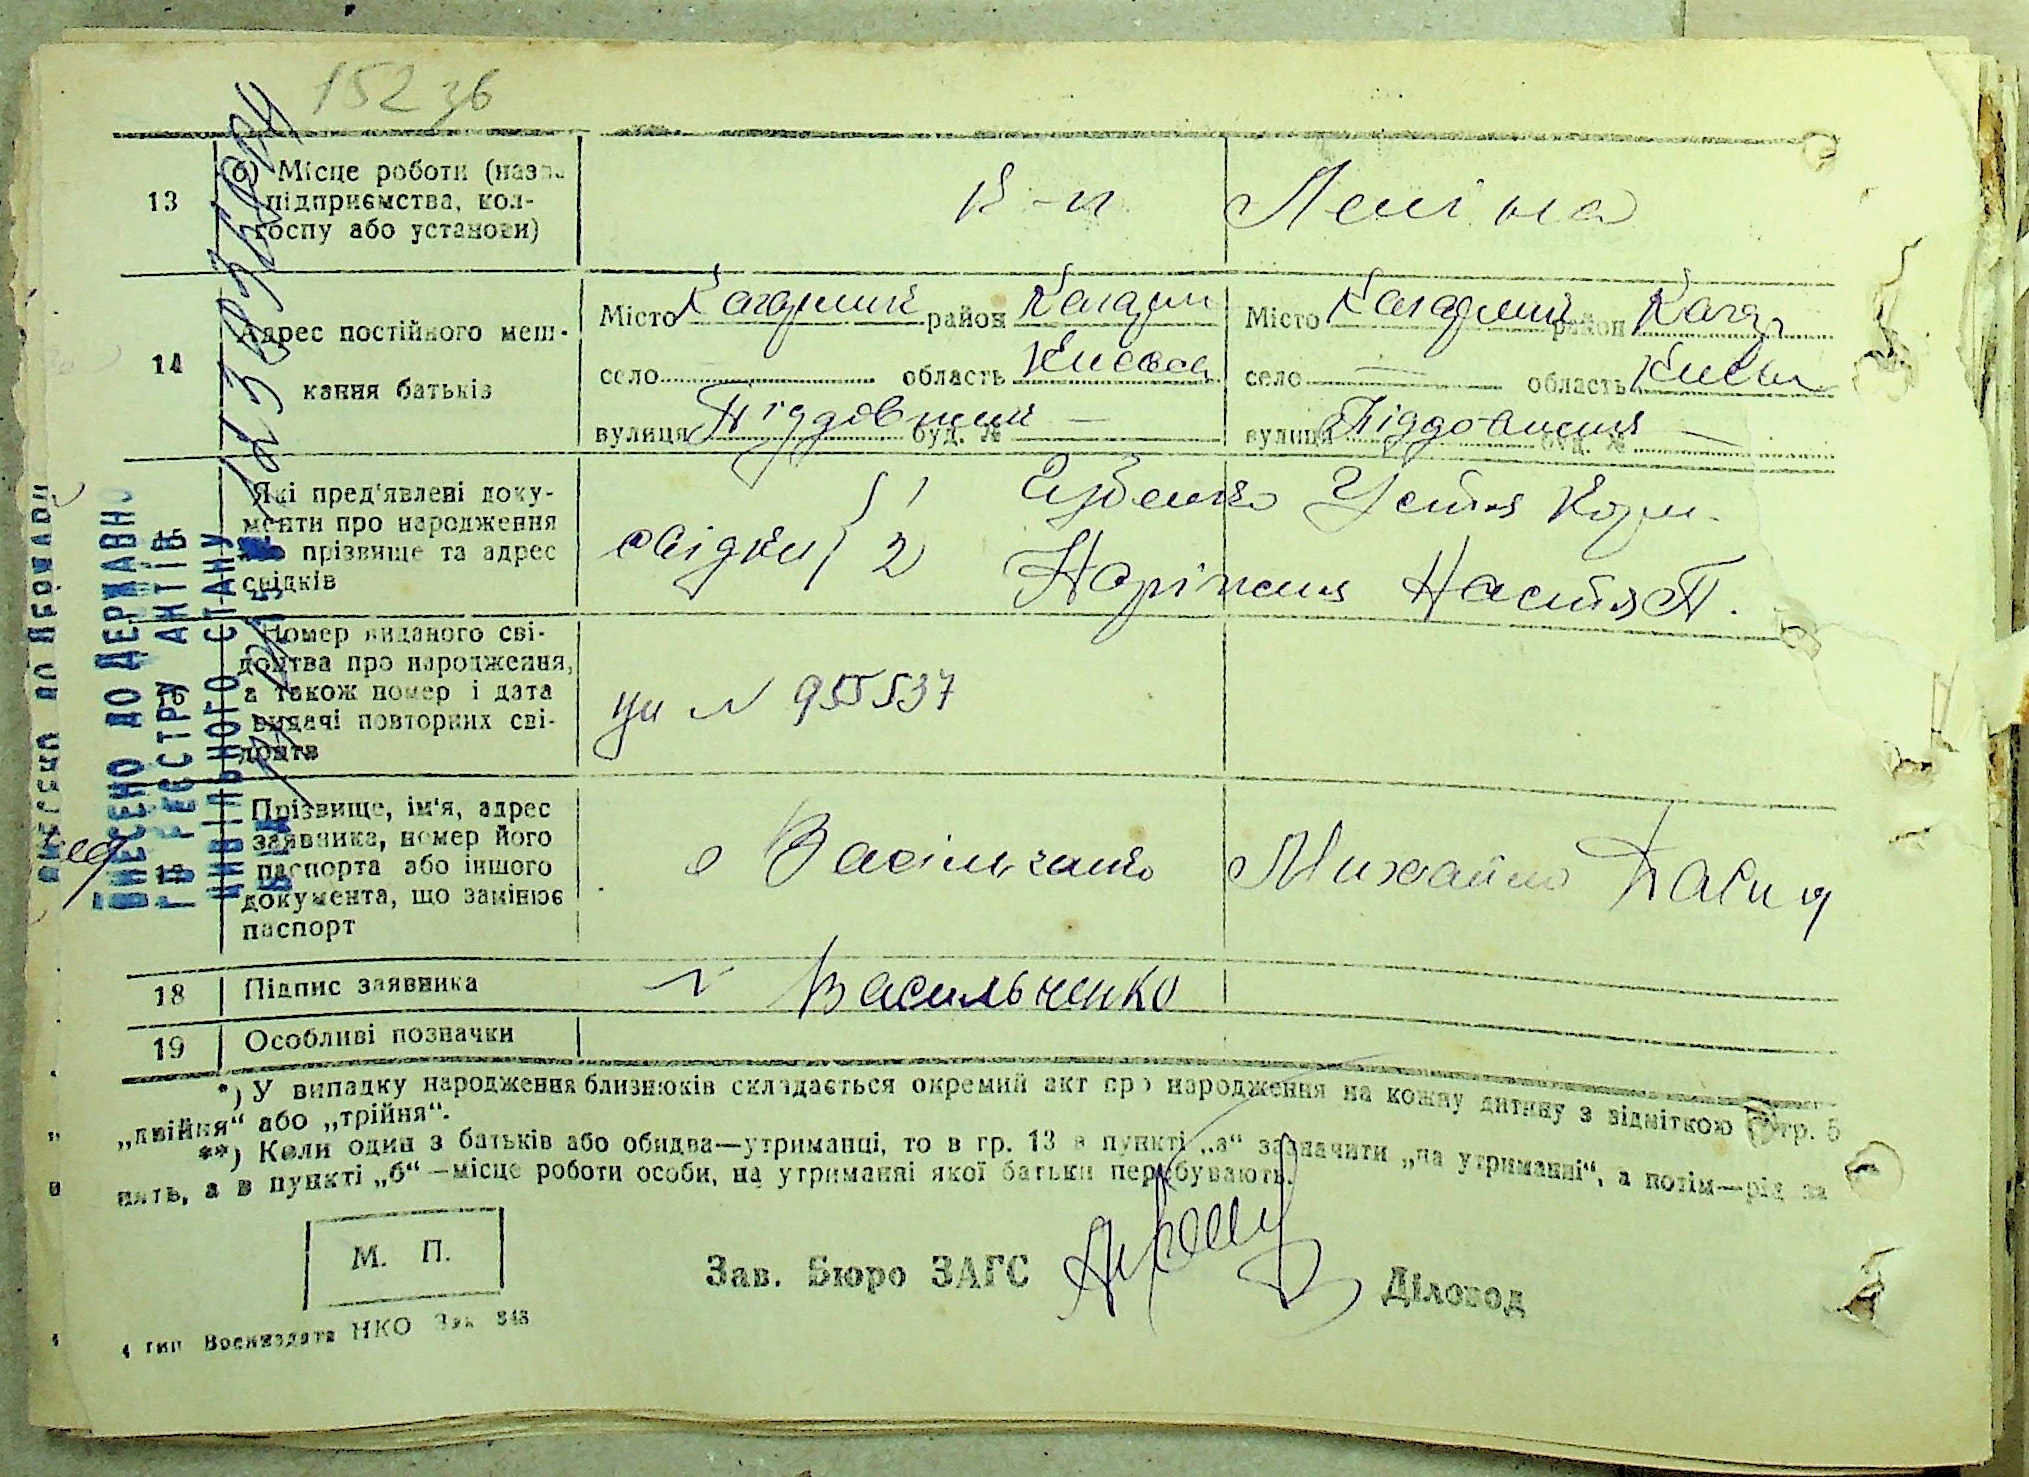 152 зв
13
б) Місце роботи (назва
підприємства, кол-
госпу або установи)
к-п Леніна
14
Адрес постійного меш-
кання батьків
Місто Кагарлик район Кагарл
село область Київськ
вулиця буд. №
Місто Кагарлик район Кагар
село — область Київ
вулиця буд. № —
15
Які пред'явлені доку-
менти про народження
або прізвище та адрес
свідків
свідки 1
Устя
2
Настя П.
16
Номер виданого сві-
доцтва про народження,
а також номер і дата
видачі повторних сві-
доцтв
№ 955537
17
Прізвище, ім'я, адрес
заявника, номер його
паспорта або іншого
документа, що замінює
паспорт
Васільченко Михайло
18
Підпис заявника
Васильченко
19
Особливі позначки
*) У випадку народження близнюків складається окремий акт про народження на кожну дитину з відміткою в гр. 5
„двійня“ або „трійня“.
**) Коли один з батьків або обидва—утриманці, то в гр. 13 в пункті „а“ зазначити „на утриманні“, а потім—рід за
нять, а в пункті „б“—місце роботи особи, на утриманні якої батьки перебувають.
М. П.
Зав. Бюро ЗАГС
Діловод
4 тип Воениздата НКО Зак 348
ВНЕСЕНО ДО ДЕРЖАВНО
ГО РЕЄСТРУ АКТІВ
ЦИВІЛЬНОГО СТАНУ